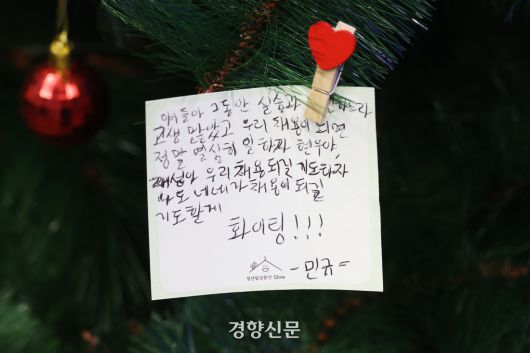 얘들아 그동안 실습과 하느라
고생 많았고 우리 채용이 되면
정말 열심히 일하자 현우야,
재성아 우리 채용되길 기도하자
나도 네네가 채용이 되길
기도할게
화이팅!!!
청년밥상문간 Slow
-민규=
경향신문